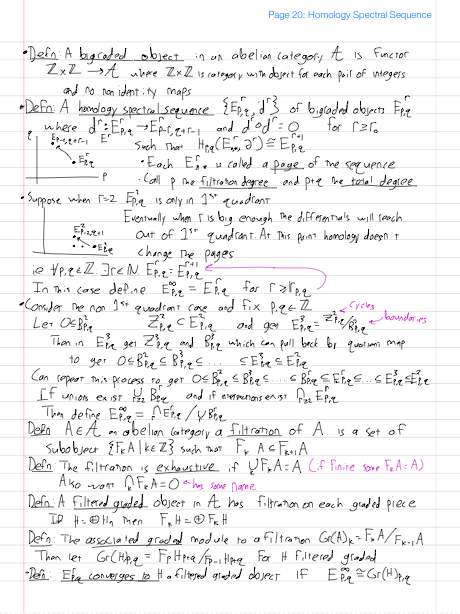 Page 20: Homology Spectral Sequence
• Defn: A bigraded object in an abelian category A is functor
Z×Z → A where Z×Z is category with object for each pair of integers
and no non identity maps
• Defn: A homology spectral sequence {E^r_{p,q}, d^r} of bigraded objects E^r_{p,q}
where d^r: E^r_{p,q} → E^r_{p-r,q+r-1} and d^r∘d^r = 0 for r≥r₀
q E^r_{p-r,q+r-1} E^r Such that H_{p,q}(E^r_{**}, ∂^r) ≅ E^{r+1}_{p,q}
E^r_{p,q} • Each E^r_{**} is called a page of the sequence
p • Call p the filtration degree and p+q the total degree
• Suppose when r=2 E^2_{p,q} is only in 1st quadrant
Eventually when r is big enough the differentials will reach
E^2_{p-2,q+1} out of 1st quadrant. At this point homology doesn't
E^2_{p,q} change the pages
ie ∀p,q∈Z. ∃r∈N. E^r_{p,q} = E^{r+1}_{p,q}
In this case define E^∞_{p,q} = E^r_{p,q} for r≥r_{p,q}
• Consider the non 1st quadrant case and fix p,q∈Z cycles
Let 0⊆B^2_{p,q} Z^2_{p,q}⊆E^2_{p,q} and get E^3_{p,q} = Z^2_{p,q}/B^2_{p,q} boundaries
Then in E^3_{p,q} get Z^3_{p,q} and B^3_{p,q} which can pull back by quotient map
to get 0⊆B^2_{p,q}⊆B^3_{p,q}⊆ ..... ⊆E^3_{p,q}⊆E^2_{p,q}
Can repeat this process to get 0⊆B^2_{p,q}⊆B^3_{p,q}⊆.....⊆B^r_{p,q}⊆E^r_{p,q}⊆...⊆E^3_{p,q}⊆E^2_{p,q}
If unions exist ⋃_{r≥2} B^r_{p,q} and if intersections exist ⋂_{r≥2} E^r_{p,q}
Then define E^∞_{p,q} = ⋂E^r_{p,q} / ⋃B^r_{p,q}
Defn A∈A an abelian category a filtration of A is a set of
Subobject {F_kA | k∈Z} such that F_kA ⊆ F_{k+1}A
Defn: The filtration is exhaustive if ⋃F_kA = A (if finite some F_kA = A)
Also want ⋂_k F_kA = 0 ← has some name
Defn: A filtered graded object in A has filtration on each graded piece
If H = ⊕H_n then F_kH = ⊕F_kH
Defn: The associated graded module to a filtration Gr(A)_k = F_kA/F_{k-1}A
Then let Gr(H)_{p,q} = F_pH_{p+q}/F_{p-1}H_{p+q} for H filtered graded
• Defn: E^r_{p,q} converges to H a filtered graded object if E^∞_{p,q} ≅ Gr(H)_{p,q}